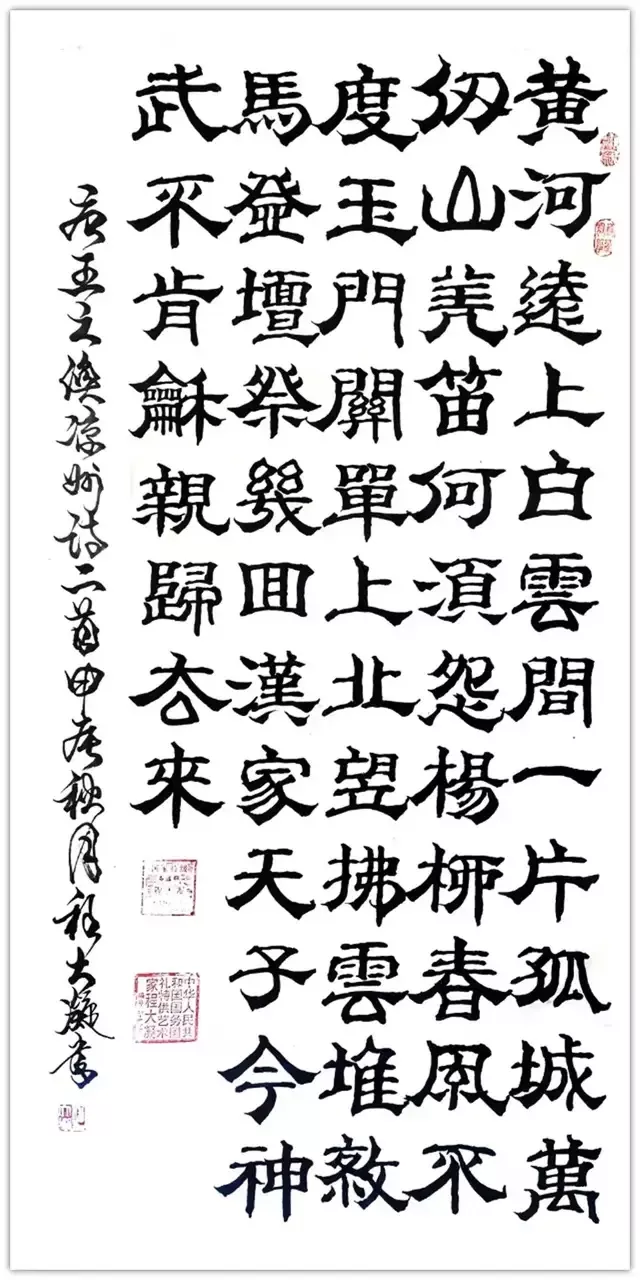 黄河遠上白雲間一片孤城萬
仞山羌笛何須怨楊柳春風不
度玉門關單上北望拂雲堆殺
馬登壇祭幾回漢家天子今神
武不肯龢親歸去來
唐王之渙凉州詩二首甲辰秋月程大凝書
中华人民共
和国国务国
礼特供艺术
家程大凝